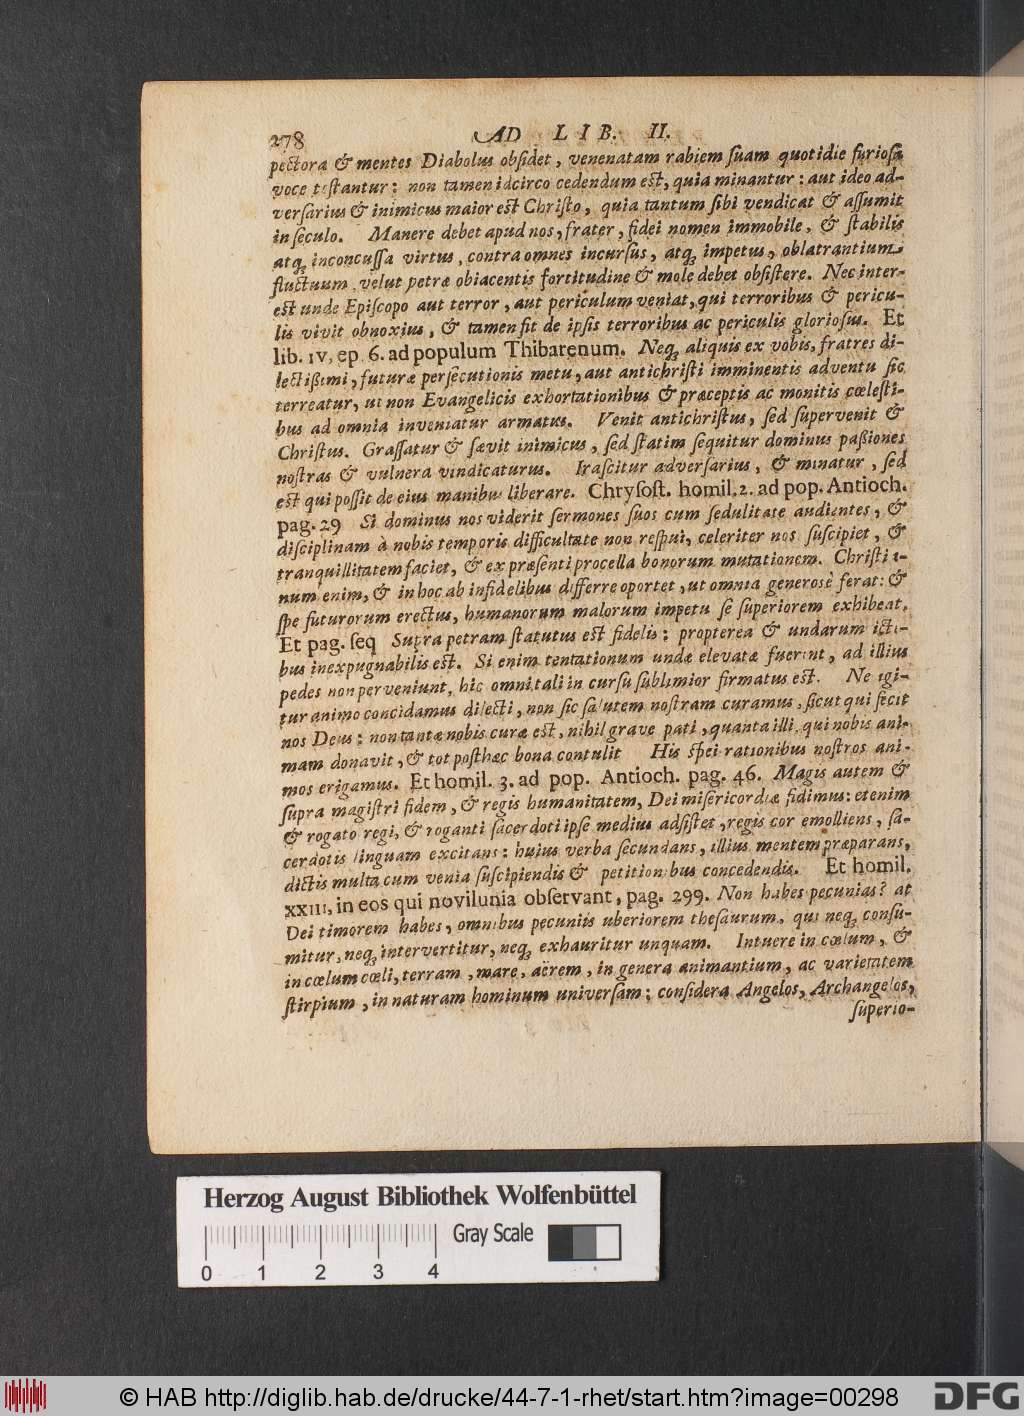 278 AD LIB. II.
pectora & mentes Diabolus obſidet, venenatam rabiem ſuam quotidie furioſa
voce teſtantur: non tamen idcirco cedendum eſt, quia minantur: aut ideo ad-
verſarius & inimicus maior eſt Chriſto, quia tantum ſibi vendicat & aſſumit
in ſeculo. Manere debet apud nos, frater, fidei nomen immobile, & ſtabilis
atq; inconcuſſa virtus, contra omnes incurſus, atq; impetus, oblatrantium
fluctuum velut petræ obiacentis fortitudine & mole debet obſiſtere. Nec inter-
eſt unde Epiſcopo aut terror, aut periculum veniat, qui terroribus & pericu-
lis vivit obnoxius, & tamen fit de ipſis terroribus ac periculis glorioſus. Et
lib. IV, ep. 6. ad populum Thibarenum. Neq; aliquis ex vobis, fratres di-
lectißimi, futuræ perſecutionis metu, aut antichriſti imminentis adventu ſic
terreatur, ut non Evangelicis exhortationibus & præceptis ac monitis cœleſti-
bus ad omnia inveniatur armatus. Venit antichriſtus, ſed ſupervenit &
Chriſtus. Graſſatur & ſævit inimicus, ſed ſtatim ſequitur dominus paßiones
noſtras & vulnera vindicaturus. Iraſcitur adverſarius, & minatur, ſed
eſt qui poſſit de eius manibus liberare. Chryſoſt. homil. 2. ad pop. Antioch.
pag. 29 Si dominus nos viderit ſermones ſuos cum ſedulitate audientes, &
diſciplinam à nobis temporis difficultate non reſpui, celeriter nos ſuſcipiet, &
tranquillitatem faciet, & ex præſenti procella bonorum mutationem. Chriſti i-
num enim, & in hoc ab infidelibus differre oportet, ut omnia generosè ferat: &
ſpe futurorum erectus, humanorum malorum impetu ſe ſuperiorem exhibeat.
Et pag. ſeq Supra petram ſtatutus eſt fidelis: propterea & undarum icti-
bus inexpugnabilis eſt. Si enim tentationum undæ elevatæ fuerint, ad illius
pedes non perveniunt, hic omni tali in curſu ſublimior firmatus eſt. Ne igi-
tur animo concidamus dilecti, non ſic ſalutem noſtram curamus, ſicut qui fecit
nos Deus: non tantæ nobis curæ eſt, nihil grave pati, quanta illi, qui nobis ani-
mam donavit, & tot poſthæc bona contulit His ſpei rationibus noſtros ani-
mos erigamus. Et homil. 3. ad pop. Antioch. pag. 46. Magis autem &
ſupra magiſtri fidem, & regis humanitatem, Dei miſericordiæ fidimus: etenim
& rogato regi, & roganti ſacerdoti ipſe medius adſiſtet, regis cor emolliens, ſa-
cerdotis linguam excitans: huius verba ſecundans, illius mentem præparans,
dictis multa cum venia ſuſcipiendis & petitionibus concedendis. Et homil.
XXIII, in eos qui novilunia obſervant, pag. 299. Non habes pecunias? at
Dei timorem habes, omnibus pecuniis uberiorem theſaurum, qui neq; conſu-
mitur, neq; intervertitur, neq; exhauritur unquam. Intuere in cœlum, &
in cœlum cœli, terram, mare, aërem, in genera animantium, ac varietatem
ſtirpium, in naturam hominum univerſam: conſidera Angelos, Archangelos,
ſuperio-
Herzog August Bibliothek Wolfenbüttel
Gray Scale
0 1 2 3 4
© HAB http://diglib.hab.de/drucke/44-7-1-rhet/start.htm?image=00298
DFG